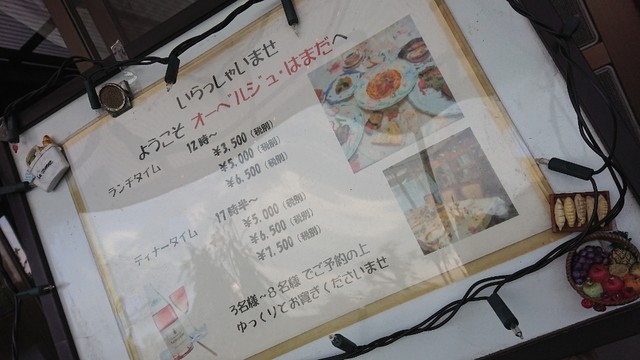 いらっしゃいませ
ようこそ オーベルジュ・はまだへ
ランチタイム 12時〜 ¥3,500 (税別)
¥5,000 (税別)
¥6,500 (税別)
ディナータイム 17時半〜 ¥5,000 (税別)
¥6,500 (税別)
¥7,500 (税別)
3名様〜8名様でご予約の上
ゆっくりとお寛ぎくださいませ